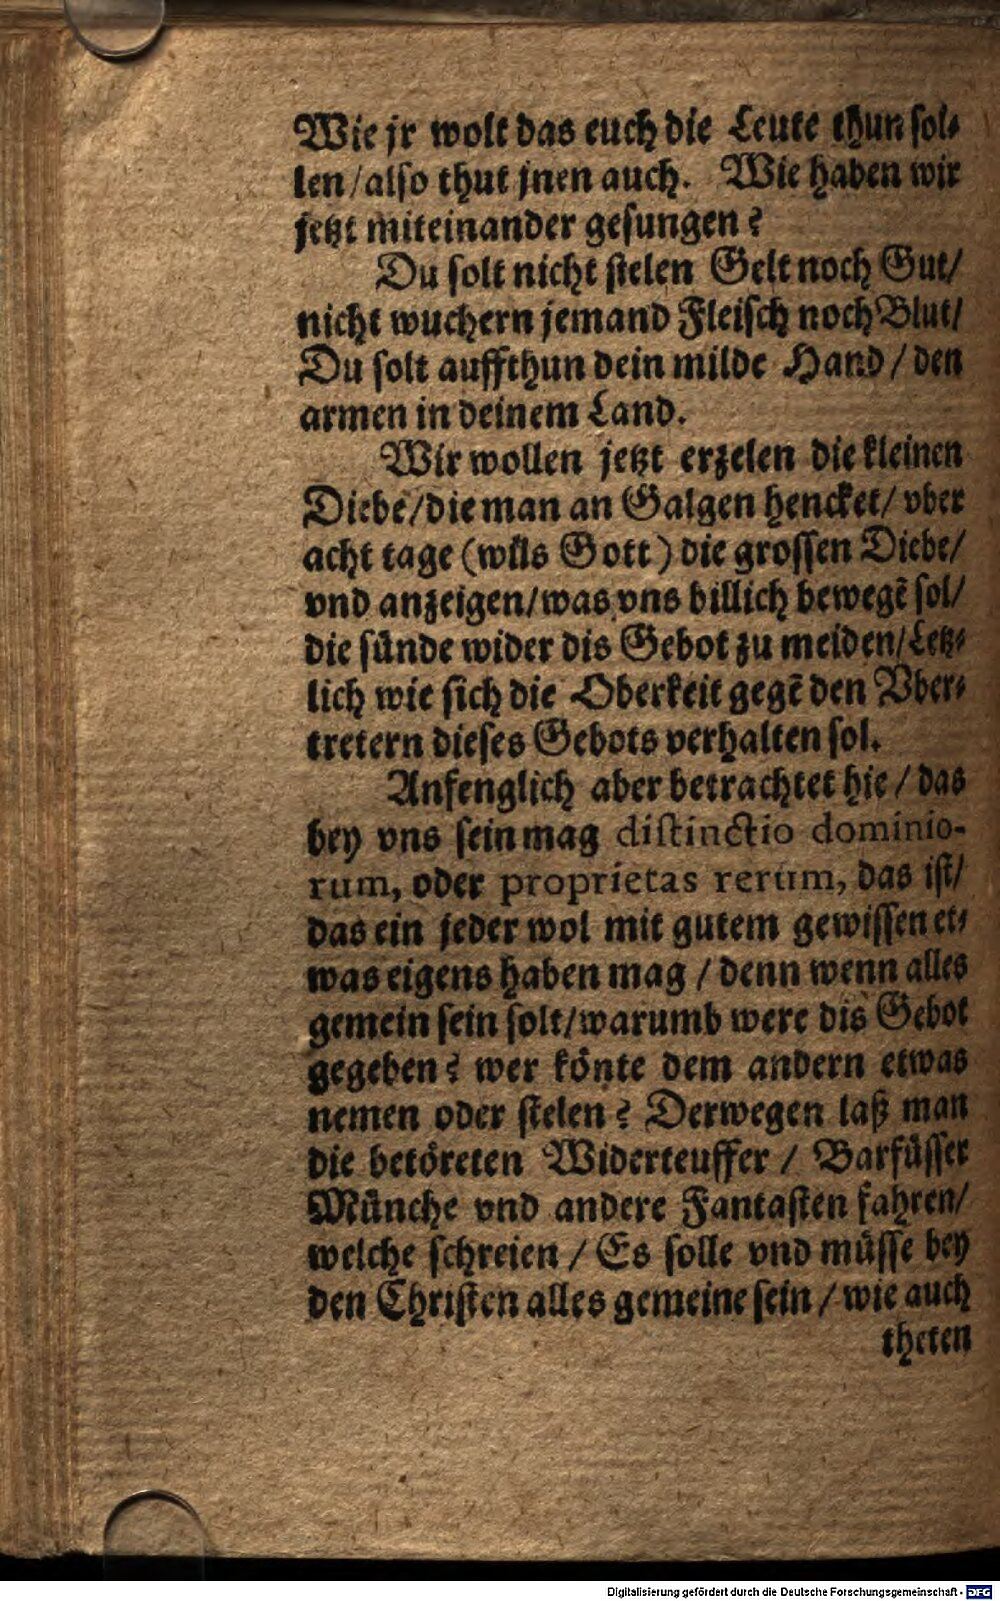 Wie jr wolt das euch die Leute thun sol⸗
len/also thut jnen auch. Wie haben wir
jetzt miteinander gesungen?
Du solt nicht stelen Gelt noch Gut/
nicht wuchern jemand Fleisch noch Blut/
Du solt auffthun dein milde Hand/den
armen in deinem Land.
Wir wollen jetzt erzelen die kleinen
Diebe/die man an Galgen hencket/vber
acht tage (wils Gott) die grossen Diebe/
vnd anzeigen/was vns billich bewegẽ sol/
die sünde wider dis Gebot zu meiden/Letz⸗
lich wie sich die Oberkeit gegẽ den Vber⸗
tretern dieses Gebots verhalten sol.
Anfenglich aber betrachtet hie/das
bey vns sein mag distinctio dominio-
rum, oder proprietas rerum, das ist/
das ein jeder wol mit gutem gewissen et⸗
was eigens haben mag/denn wenn alles
gemein sein solt/warumb were dis Gebot
gegeben? wer könte dem andern etwas
nemen oder stelen? Derwegen laß man
die betöreten Widerteuffer/Barfüsser
Münche vnd andere Fantasten fahren/
welche schreien/Es solle vnd müsse bey
den Christen alles gemeine sein/wie auch
theten
Digitalisierung gefördert durch die Deutsche Forschungsgemeinschaft - DFG